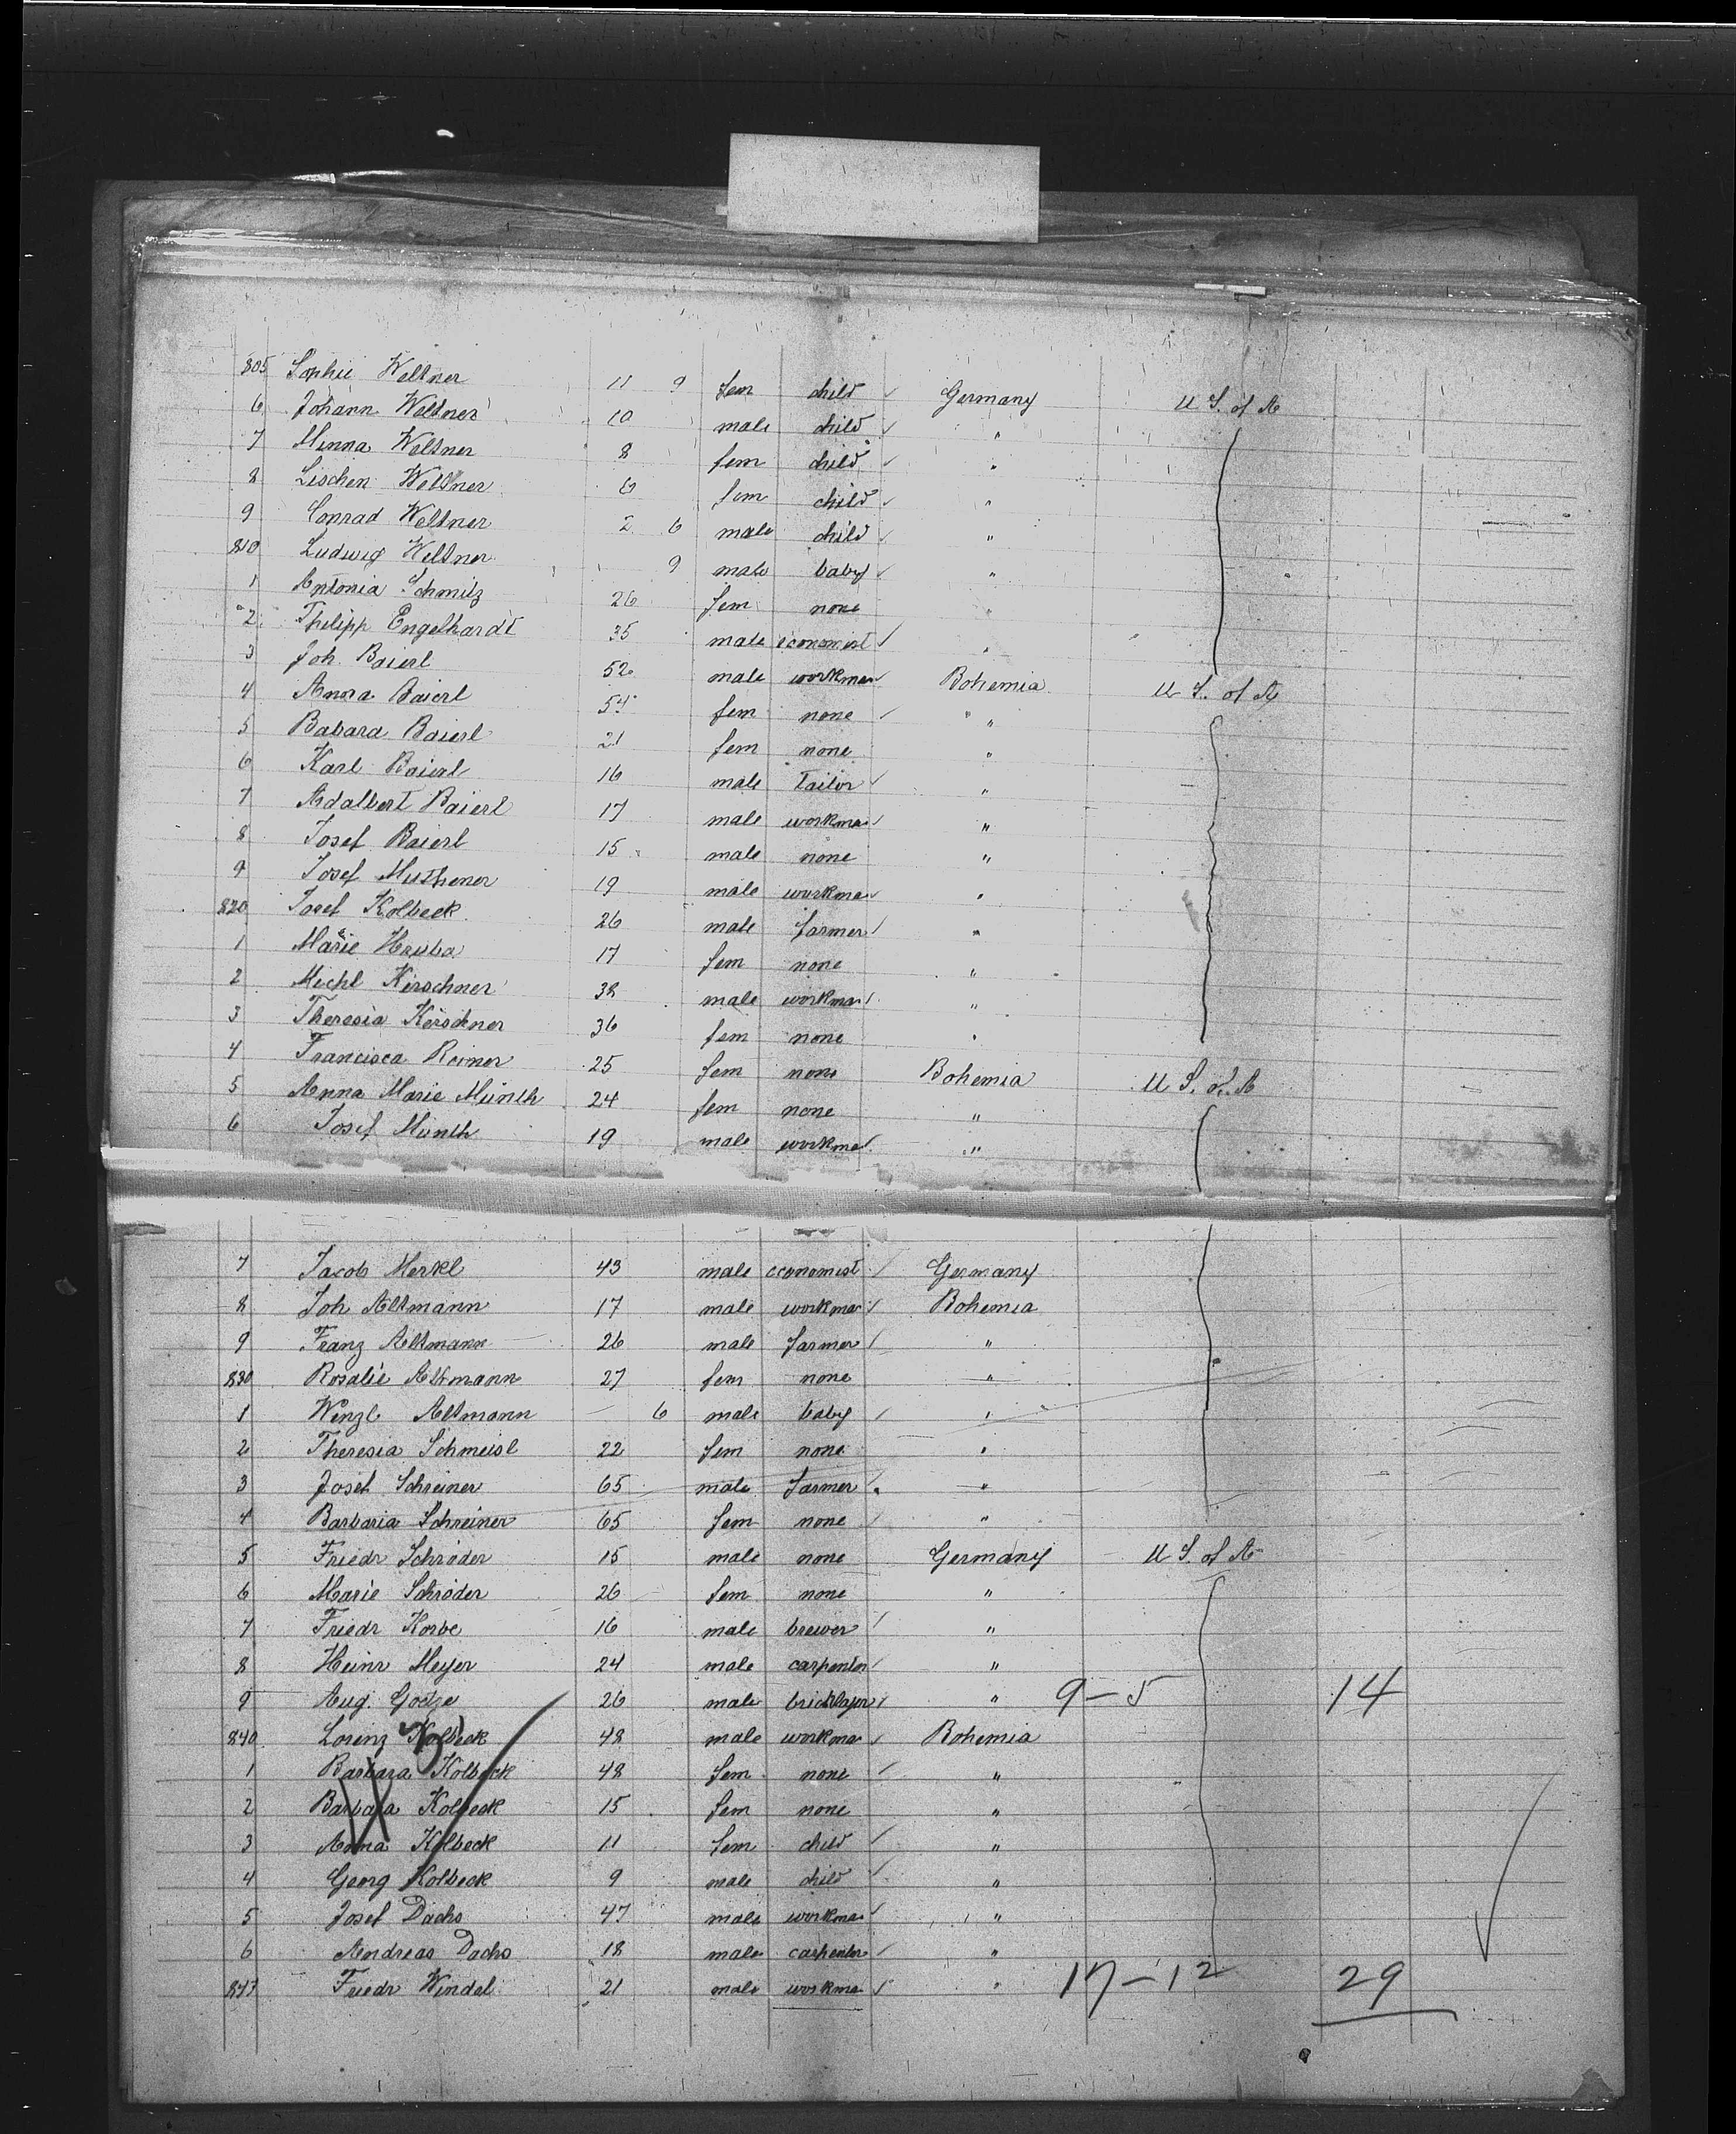 805 Sophie Weltner 11 9 fem child Germany U S. of A
6 Johann Weltner 10 male child "
7 Minna Weltner 8 fem child "
8 Lischen Weltner 6 fem child "
9 Conrad Weltner 2 6 male child "
810 Ludwig Weltner 9 male baby "
1 Antonia Schmitz 26 fem none "
2 Philipp Engelhardt 35 male economist "
3 Joh. Baierl 52 male workman Bohemia U S. of A
4 Anna Baierl 54 fem none "
5 Babara Baierl 21 fem none "
6 Karl Baierl 16 male Tailor "
7 Adalbert Baierl 17 male workman "
8 Josef Baierl 15 male none "
9 Josef 19 male workman "
820 Josef Kolbeck 26 male farmer "
1 Marie Hruba 17 fem none "
2 Michl Kirschner 38 male workman "
3 Theresia Kirschner 36 fem none "
4 Francisca Reiner 25 fem none Bohemia U S. of A
5 Anna Marie Münth 24 fem none "
6 Josef Münth 19 male workman "
7 Jacob Merkl 43 male economist Germany
8 Joh Altmann 17 male workman Bohemia
9 Franz Altmann 26 male farmer "
830 Rosalie Altmann 27 fem none "
1 Wenzl Altmann — 6 male baby "
2 Theresia Schmeisl 22 fem none "
3 Josef Schreiner 65 male farmer "
4 Barbaria Schreiner 65 fem none "
5 Friedr Schröder 15 male none Germany U S. of A
6 Marie Schröder 26 fem none "
7 Friedr Korbe 16 male brewer "
8 Heinr Meyer 24 male carpenter "
9 Aug. Godze 26 male bricklayer " 9-5 14
840 Lorenz Kolbeck 48 male workman Bohemia
1 Barbara Kolbeck 48 fem none "
2 Barbara Kolbeck 15 fem none "
3 Anna Kolbeck 11 fem child "
4 Georg Kolbeck 9 male child "
5 Josef Dachs 47 male workman "
6 Andreas Dachs 18 male carpenter "
847 Friedr Windel 21 male workman " 17-12 29